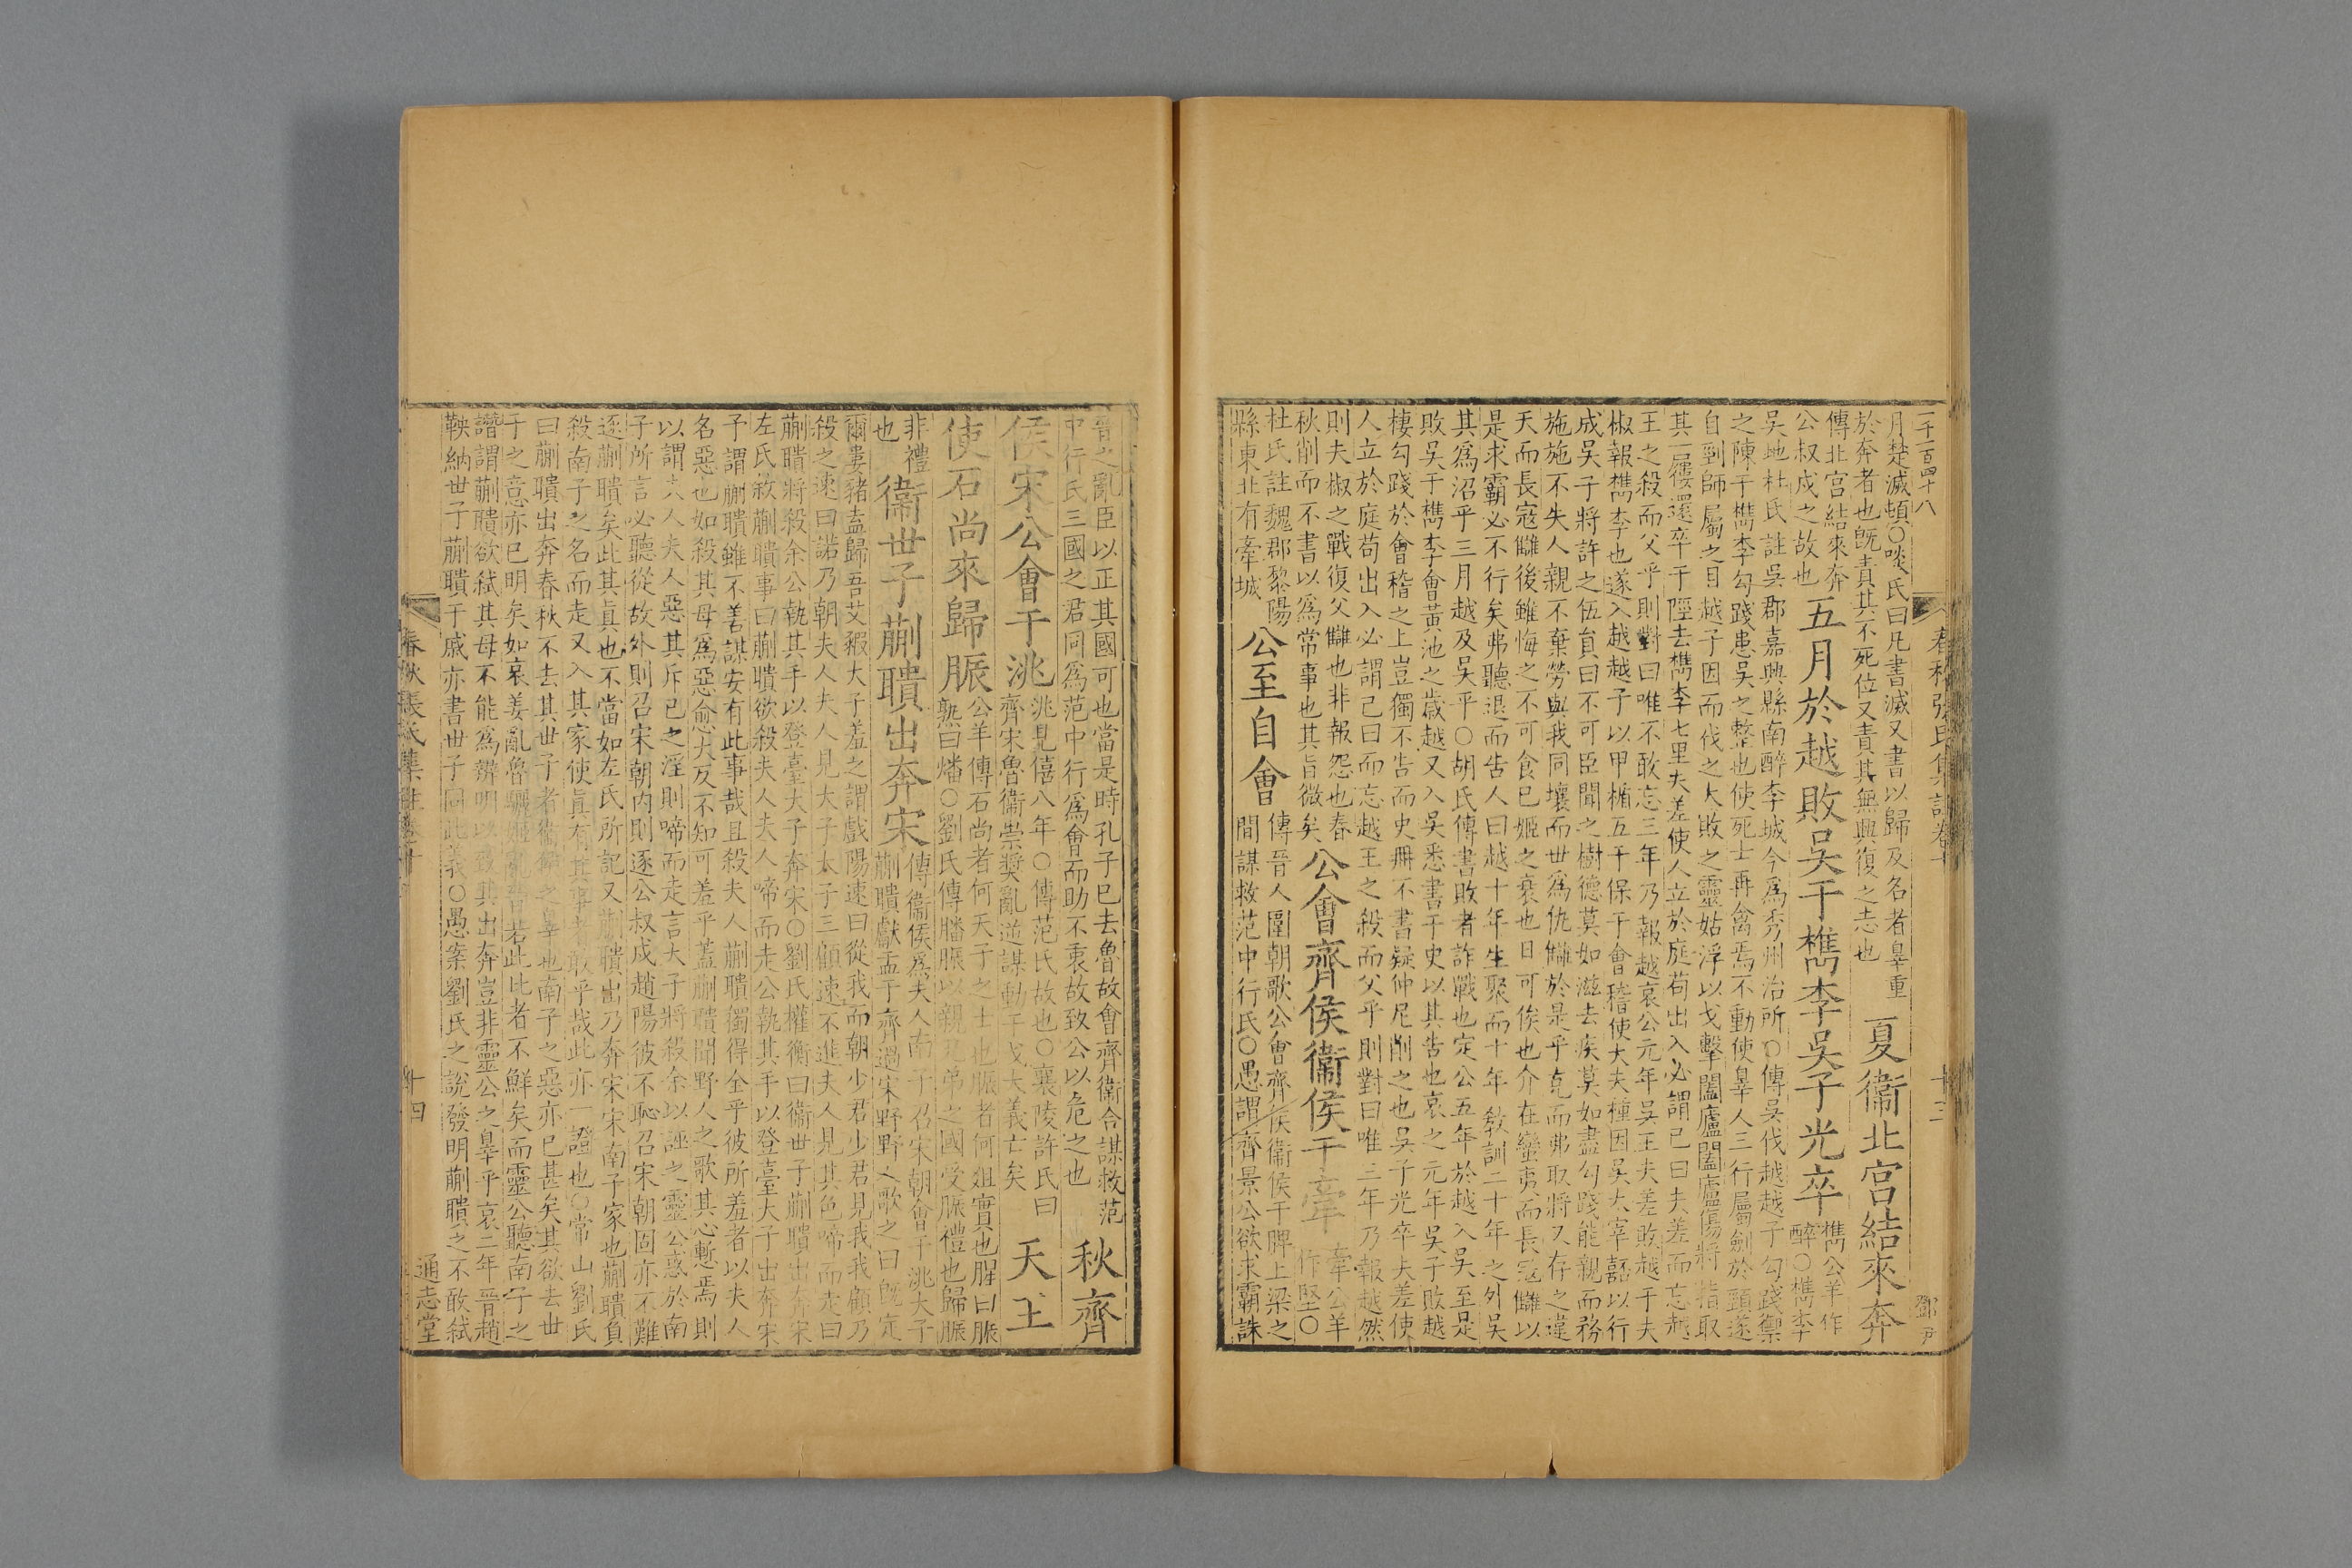 一千二百四十八
月楚滅頓〇啖氏曰凡書滅又書以歸及名者辠重
於奔者也旣責其不死位又責其無興復之志也
夏衞北宮結來奔
傳北宮結來奔
公叔戍之故也
五月於越敗吳于檇李吳子光卒
檇公羊作
醉〇檇李
吳地杜氏註吳郡嘉興縣南醉李城今爲秀州治所〇傳吳伐越越子勾踐禦
之陳于檇李勾踐患吳之整也使死士再禽焉不動使辠人三行屬劍於頸遂
自剄師屬之目越子因而伐之大敗之靈姑浮以戈擊闔廬闔廬傷將指取
其一屨還卒于陘去檇李七里夫差使人立於庭苟出入必謂已曰夫差而忘越
王之殺而父乎則對曰唯不敢忘三年乃報越哀公元年吳王夫差敗越于夫
椒報檇李也遂入越越子以甲楯五千保于會稽使大夫種因吳大宰嚭以行
成吳子將許之伍員曰不可臣聞之樹德莫如滋去疾莫如盡勾踐能親而務
施施不失人親不棄勞與我同壤而世爲仇讎於是乎克而弗取將又存之違
天而長寇讎後雖悔之不可食已姬之衰也日可俟也介在蠻夷而長寇讎以
是求霸必不行矣弗聽退而告人曰越十年生聚而十年教訓二十年之外吳
其爲沼乎三月越及吳平〇胡氏傳書敗者詐戰也定公五年於越入吳至是
敗吳于檇李會黃池之歲越又入吳悉書于史以其告也哀之元年吳子敗越
棲勾踐於會稽之上豈獨不告而史冊不書疑仲尼削之也吳子光卒夫差使
人立於庭苟出入必謂己曰而忘越王之殺而父乎則對曰唯三年乃報越然
則夫椒之戰復父讎也非報怨也春
秋削而不書以爲常事也其旨微矣
公會齊侯衞侯于牽
牽公羊
作堅〇
杜氏註魏郡黎陽
縣東北有牽城
公至自會
傳晉人圍朝歌公會齊侯衞侯于脾上梁之
間謀救范中行氏〇愚謂齊景公欲求霸誅
春秋張氏集註卷十
十三
鄧尹
晉之亂臣以正其國可也當是時孔子已去魯故會齊衞合謀救范
中行氏三國之君同爲范中行爲會而助不衷故致公以危之也
秋齊
侯宋公會于洮
洮見僖八年〇傳范氏故也〇襄陵許氏曰
齊宋魯衞崇奬亂逆謀動干戈大義亡矣
天王
使石尚來歸脤
公羊傳石尚者何天子之士也脤者何俎實也腥曰脤
熟曰燔〇劉氏傳膰脤以親兄弟之國受脤禮也歸脤
非禮
也
衞世子蒯聵出奔宋
傳衞侯爲夫人南子召宋朝會于洮大子
蒯聵獻盂于齊過宋野野人歌之曰旣定
爾婁豬盍歸吾艾豭大子羞之謂戲陽速曰從我而朝少君少君見我我顧乃
殺之速曰諾乃朝夫人夫人見大子大子三顧速不進夫人見其色啼而走曰
蒯聵將殺余公執其手以登臺大子奔宋〇劉氏權衡曰衞世子蒯聵出奔宋
左氏敘蒯聵事曰蒯聵欲殺夫人夫人啼而走公執其手以登臺大子出奔宋
予謂蒯聵雖不善謀安有此事哉且殺夫人蒯聵獨得全乎彼所羞者以夫人
名惡也如殺其母爲惡愈大反不知可羞乎蓋蒯聵聞野人之歌其心慙焉則
以謂夫人夫人惡其斥已之淫則啼而走言大子將殺余以誣之靈公惑於南
子所言必聽從故外則召宋朝內則逐公叔戍趙陽彼不恥召宋朝固亦不難
逐蒯聵矣此其眞也不當如左氏所記又蒯聵出乃奔宋宋南子家也蒯聵負
殺南子之名而走又入其家使眞有其事者敢乎哉此亦一證也〇常山劉氏
曰蒯聵出奔春秋不去其世子者衞侯之辠也南子之惡亦已甚矣其欲去世
子之意亦已明矣如哀姜亂魯驪姬亂晉若此比者不鮮矣而靈公聽南子之
譖謂蒯聵欲弒其母不能爲辨明以致其出奔豈非靈公之辠乎哀二年晉趙
鞅納世子蒯聵于戚亦書世子同此義〇愚案劉氏之說發明蒯聵之不敢弒
春秋張氏集註卷十
十四
通志堂